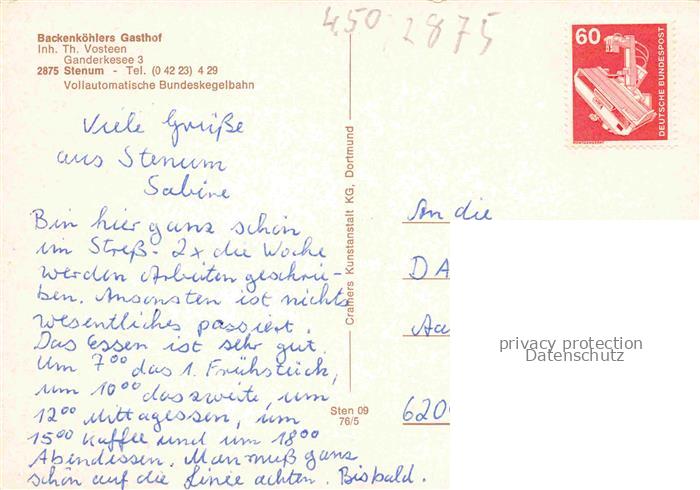 Backenköhlers Gasthof
Inh. Th. Vosteen
Ganderkesee 3
2875 Stenum - Tel. (0 42 23) 4 29
Vollautomatische Bundeskegelbahn
450 2875
60
DEUTSCHE BUNDESPOST
Viele Grüße
aus Stenum
Sabine
Bin hier ganz schön
im Streß. 2x die Woche
werden Arbeiten geschrie-
ben. Ansonsten ist nichts
wesentliches passiert.
Das Essen ist sehr gut.
Um 7⁰⁰ das 1. Frühstück,
um 10⁰⁰ das zweite, um
12⁰⁰ Mittagessen, um
15⁰⁰ Kaffee und um 18⁰⁰
Abendessen. Man muß ganz
schön auf die Linie achten. Bis bald.
Cramers Kunstanstalt KG, Dortmund
Sten 09
76/5
An die
DA
Aa
620
privacy protection
Datenschutz